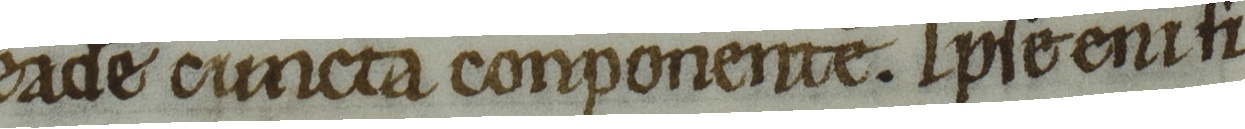 eade cuncta conponente. Ipse eni ti